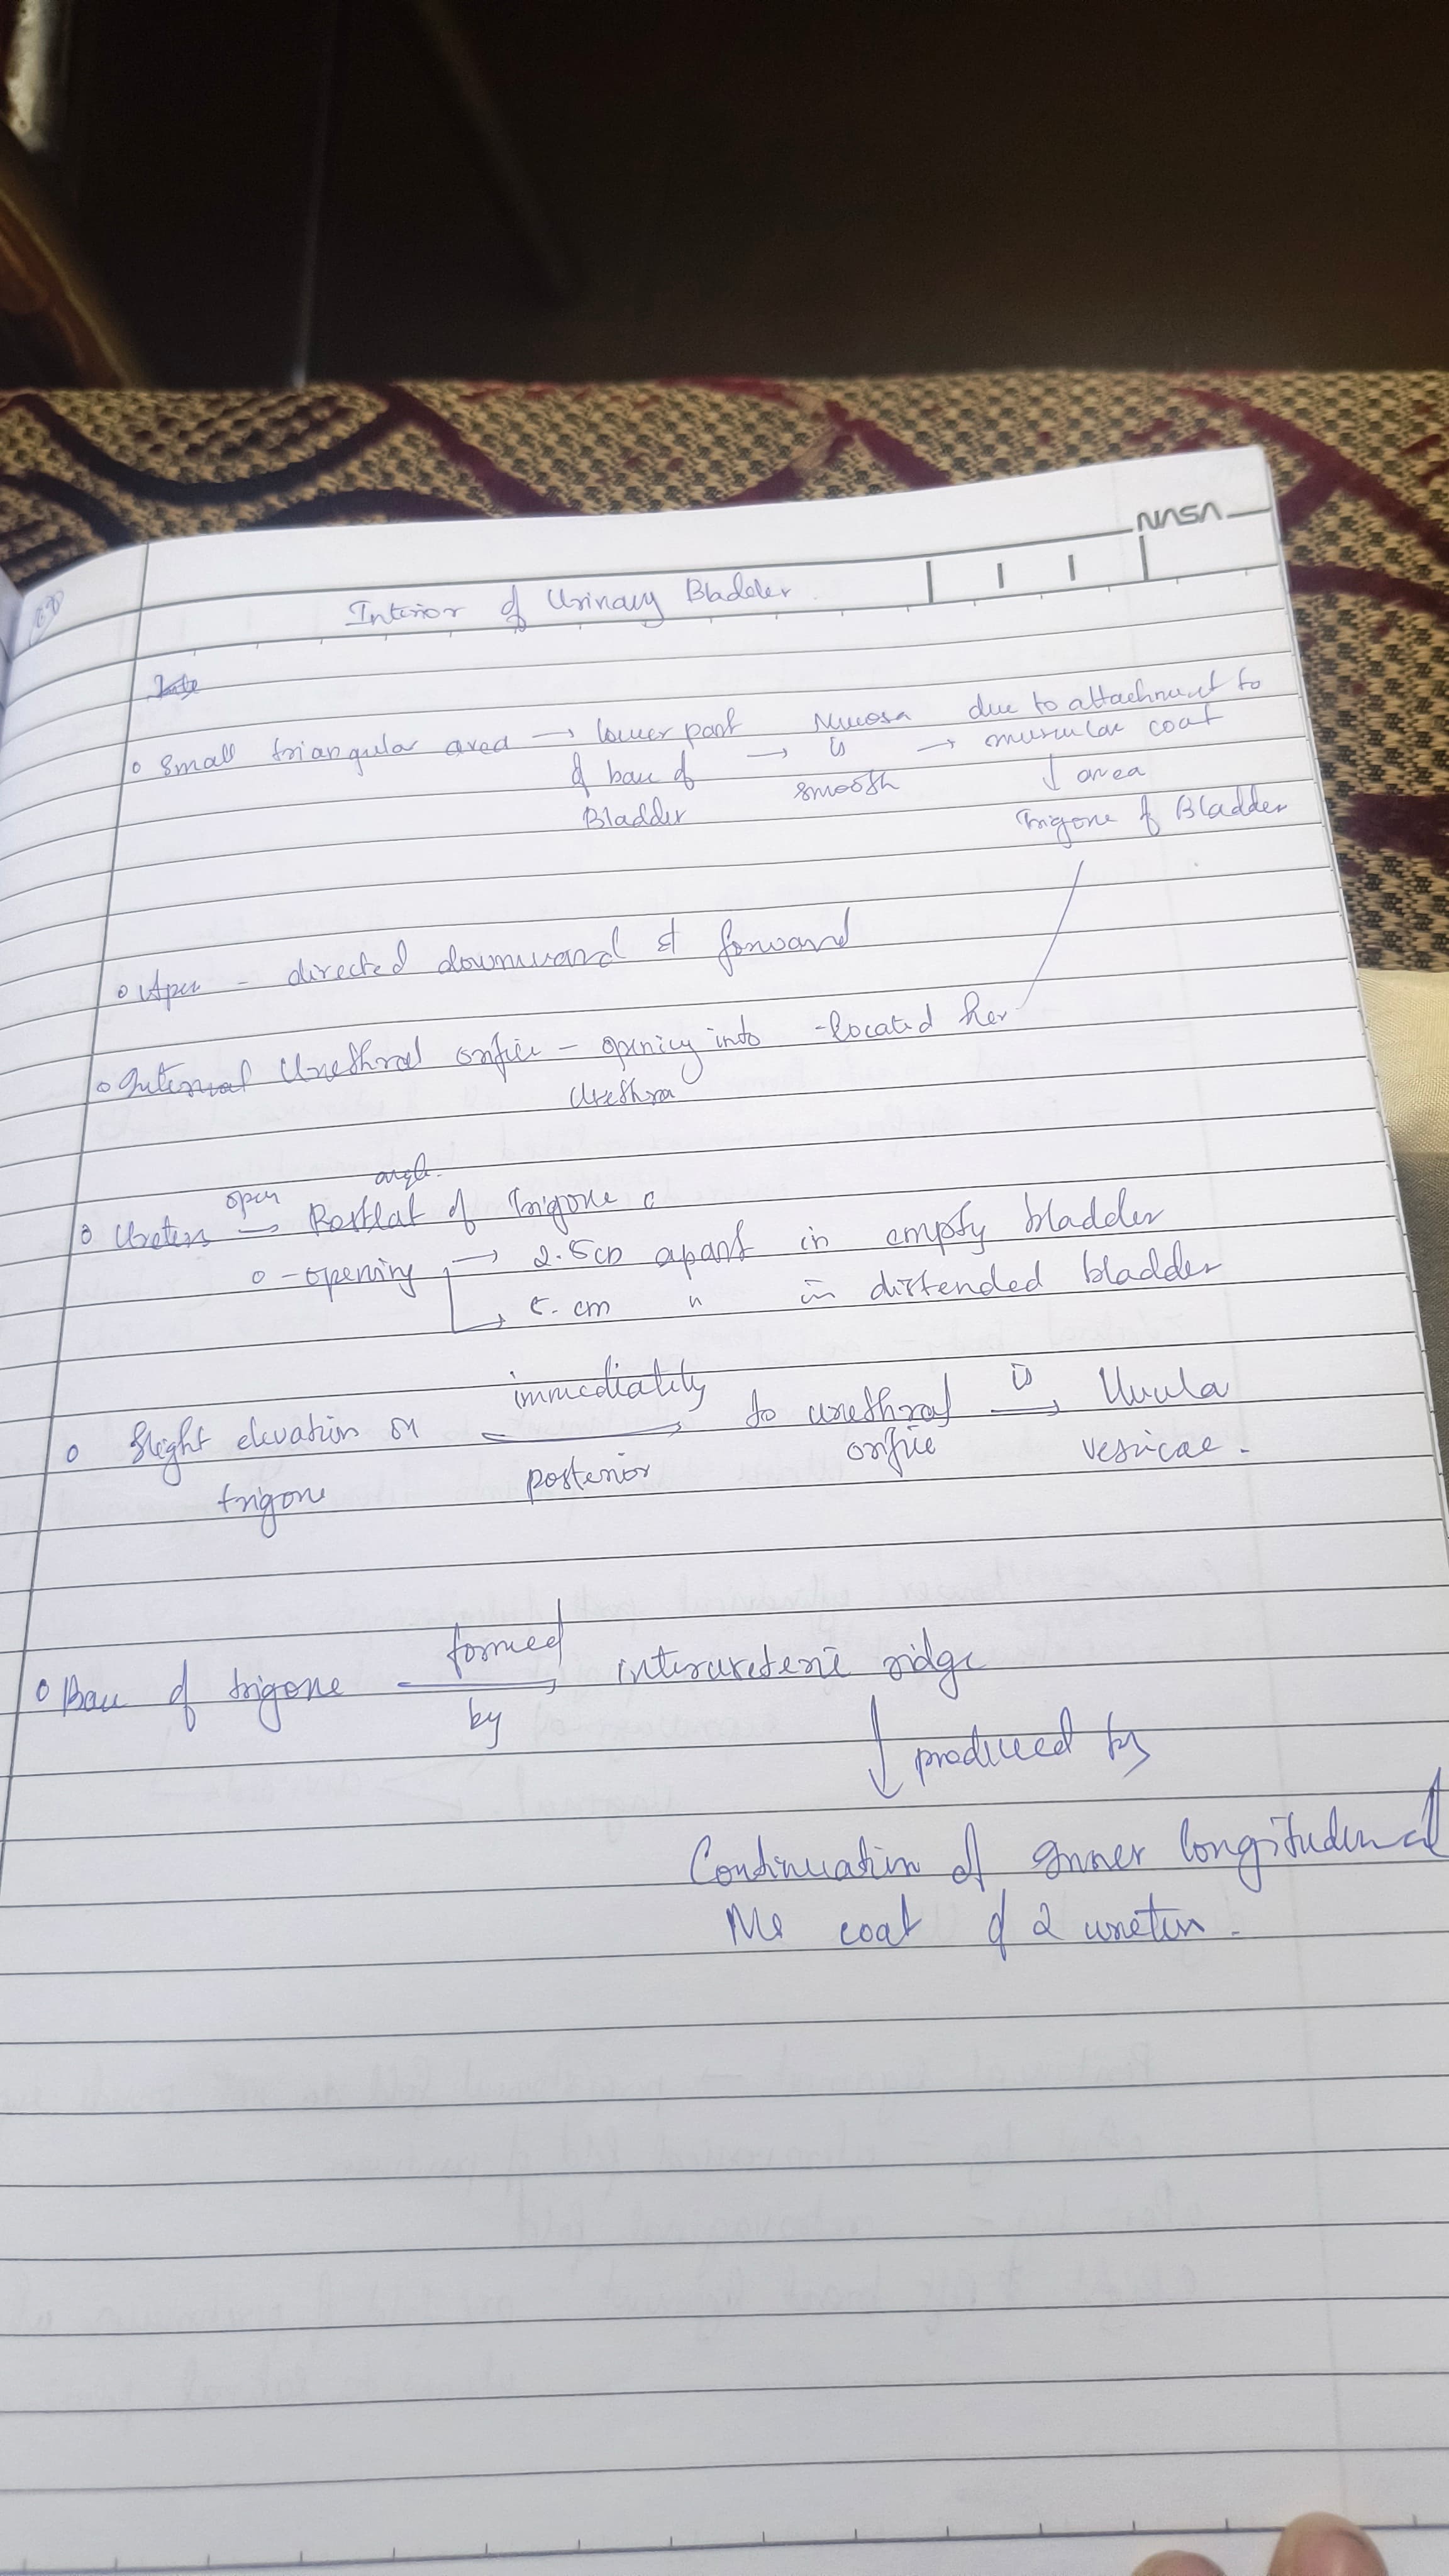 NASA
Interior of Urinary Bladder
o Small triangular area → lower part of base of Bladder → Mucosa is smooth → due to attachment to muscular coat
↓ area
Trigone of Bladder
o Apex - directed downward & forward
o Internal Urethral orifice - opening into Urethra - located her
o Ureters open → Postlat angle. of Trigone
o - opening → 2.5cm apart in empty bladder
→ 5. cm " in distended bladder
o Slight elevation on trigone immediately posterior → to urethral orifice is → Uvula vesicae.
o Base of trigone formed by → interureteric ridge
↓ produced by
Continuation of inner longitudinal
Ms coat of 2 ureters.